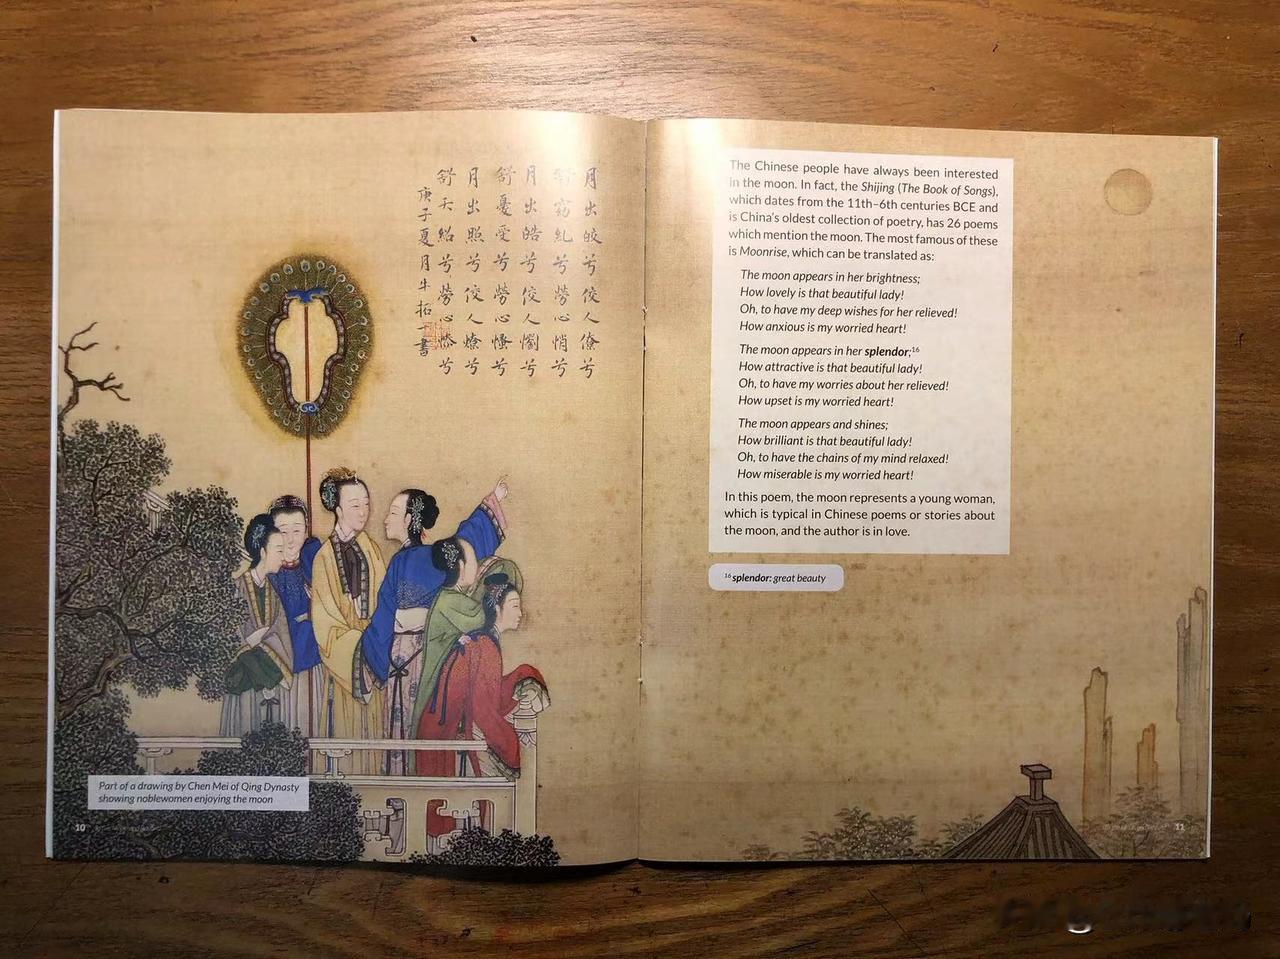 月出皎兮佼人僚兮
舒窈糾兮勞心悄兮
月出皓兮佼人懰兮
舒懮受兮勞心慅兮
月出照兮佼人燎兮
舒夭紹兮勞心慘兮
庚子夏月牛拓一書
Part of a drawing by Chen Mei of Qing Dynasty
showing noblewomen enjoying the moon
10
The Chinese people have always been interested
in the moon. In fact, the Shijing (The Book of Songs),
which dates from the 11th–6th centuries BCE and
is China's oldest collection of poetry, has 26 poems
which mention the moon. The most famous of these
is Moonrise, which can be translated as:
The moon appears in her brightness;
How lovely is that beautiful lady!
Oh, to have my deep wishes for her relieved!
How anxious is my worried heart!
The moon appears in her splendor;16
How attractive is that beautiful lady!
Oh, to have my worries about her relieved!
How upset is my worried heart!
The moon appears and shines;
How brilliant is that beautiful lady!
Oh, to have the chains of my mind relaxed!
How miserable is my worried heart!
In this poem, the moon represents a young woman,
which is typical in Chinese poems or stories about
the moon, and the author is in love.
16 splendor: great beauty
11